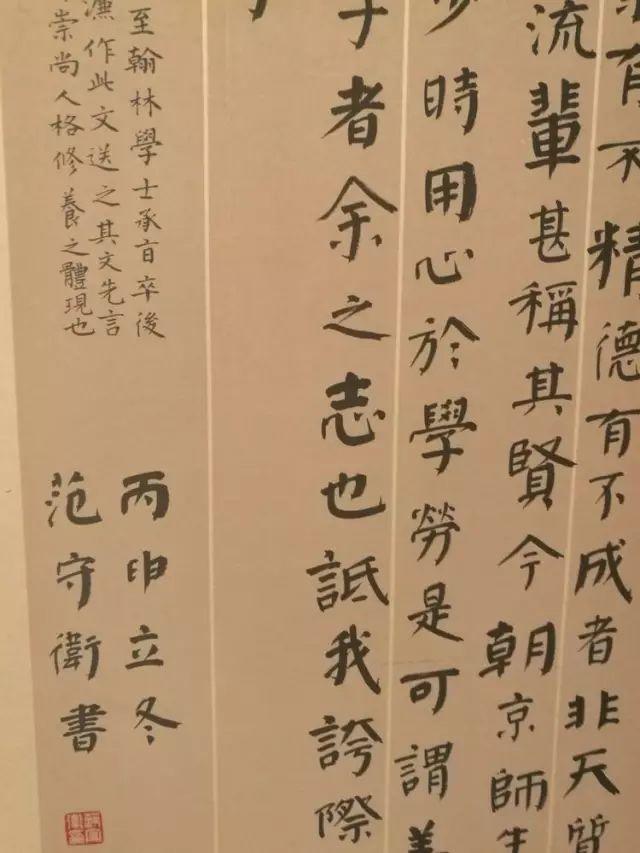 有不精德有不成者非天質
流輩甚稱其賢今朝京師生
少時用心於學勞是可謂善
子者余之志也詆我誇際
至翰林學士承旨卒後
濂作此文送之其文先言
崇尚人格修養之體現也
丙申立冬
范守衛書